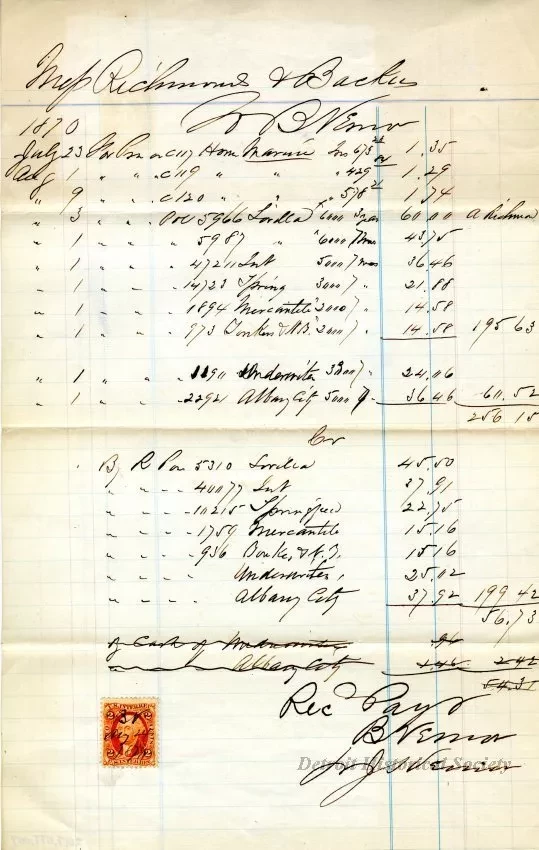 Mess Richmond & Backus
To B Vernor
1870
July 23 For Pm on C 117 Home Marine Ins 673 1.35
Aug 1 " " " C 119 " " " 429 1.29
" 9 " " " C 120 " " 578 1.74
" 3 " " Pol 5966 Lorilla 6000 60.00 A Richmond
" 1 " " " 5987 " 6000 43.75
" 1 " " " 47211 Int 5000 36.46
" 1 " " " 14723 Spring 3000 " 21.88
" 1 " " " 1894 Mercantile 2000 " 14.58
" 1 " " " 973 Yonkers & N.Y. 2000 " 14.58 195 63
" 1 " " " Underwriter 24.06
" 1 " " " 22921 Albany City 5000 36.46 60.52
256 15
Cr
By R Pm 5310 Lorilla 45.50
" " " 40077 Int 37.91
" " " 10215 Springfield 22.75
" " " 1759 Mercantile 15.16
" " " 936 Yonkers & N.Y. 15.16
" " " Underwriter 25.02
" " " Albany City 37.92 199 42
56.73
Cash of Underwriter 96
" Albany City 1 46 2 42
54.31
Rec Payt
B Vernor
J Vernor
U.S. INTER. REV.
2 2
Detroit Historical Society